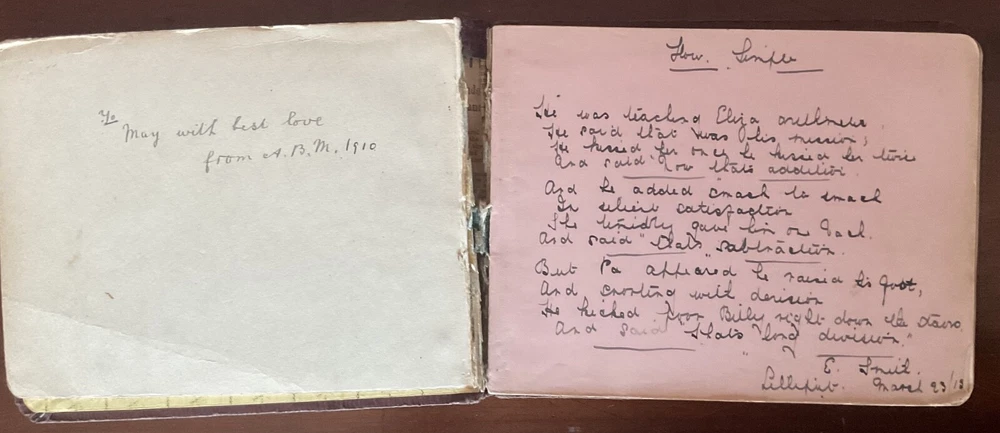 To
May with best love
from A.B.M. 1910
How Simple
He was teaching Eliza arithmetic,
He said that was his mission;
He kissed her once he kissed her twice
And said "Now thats addition.
And he added smack to smack
In silent satisfaction
She timidly gave him one back.
And said "thats" subtraction.
But Pa appeared he raised his foot,
And snorting with derision
He kicked poor Billy right down the stairs
And said "thats "long division."
E. Smith.
Lilliput. March 23/13